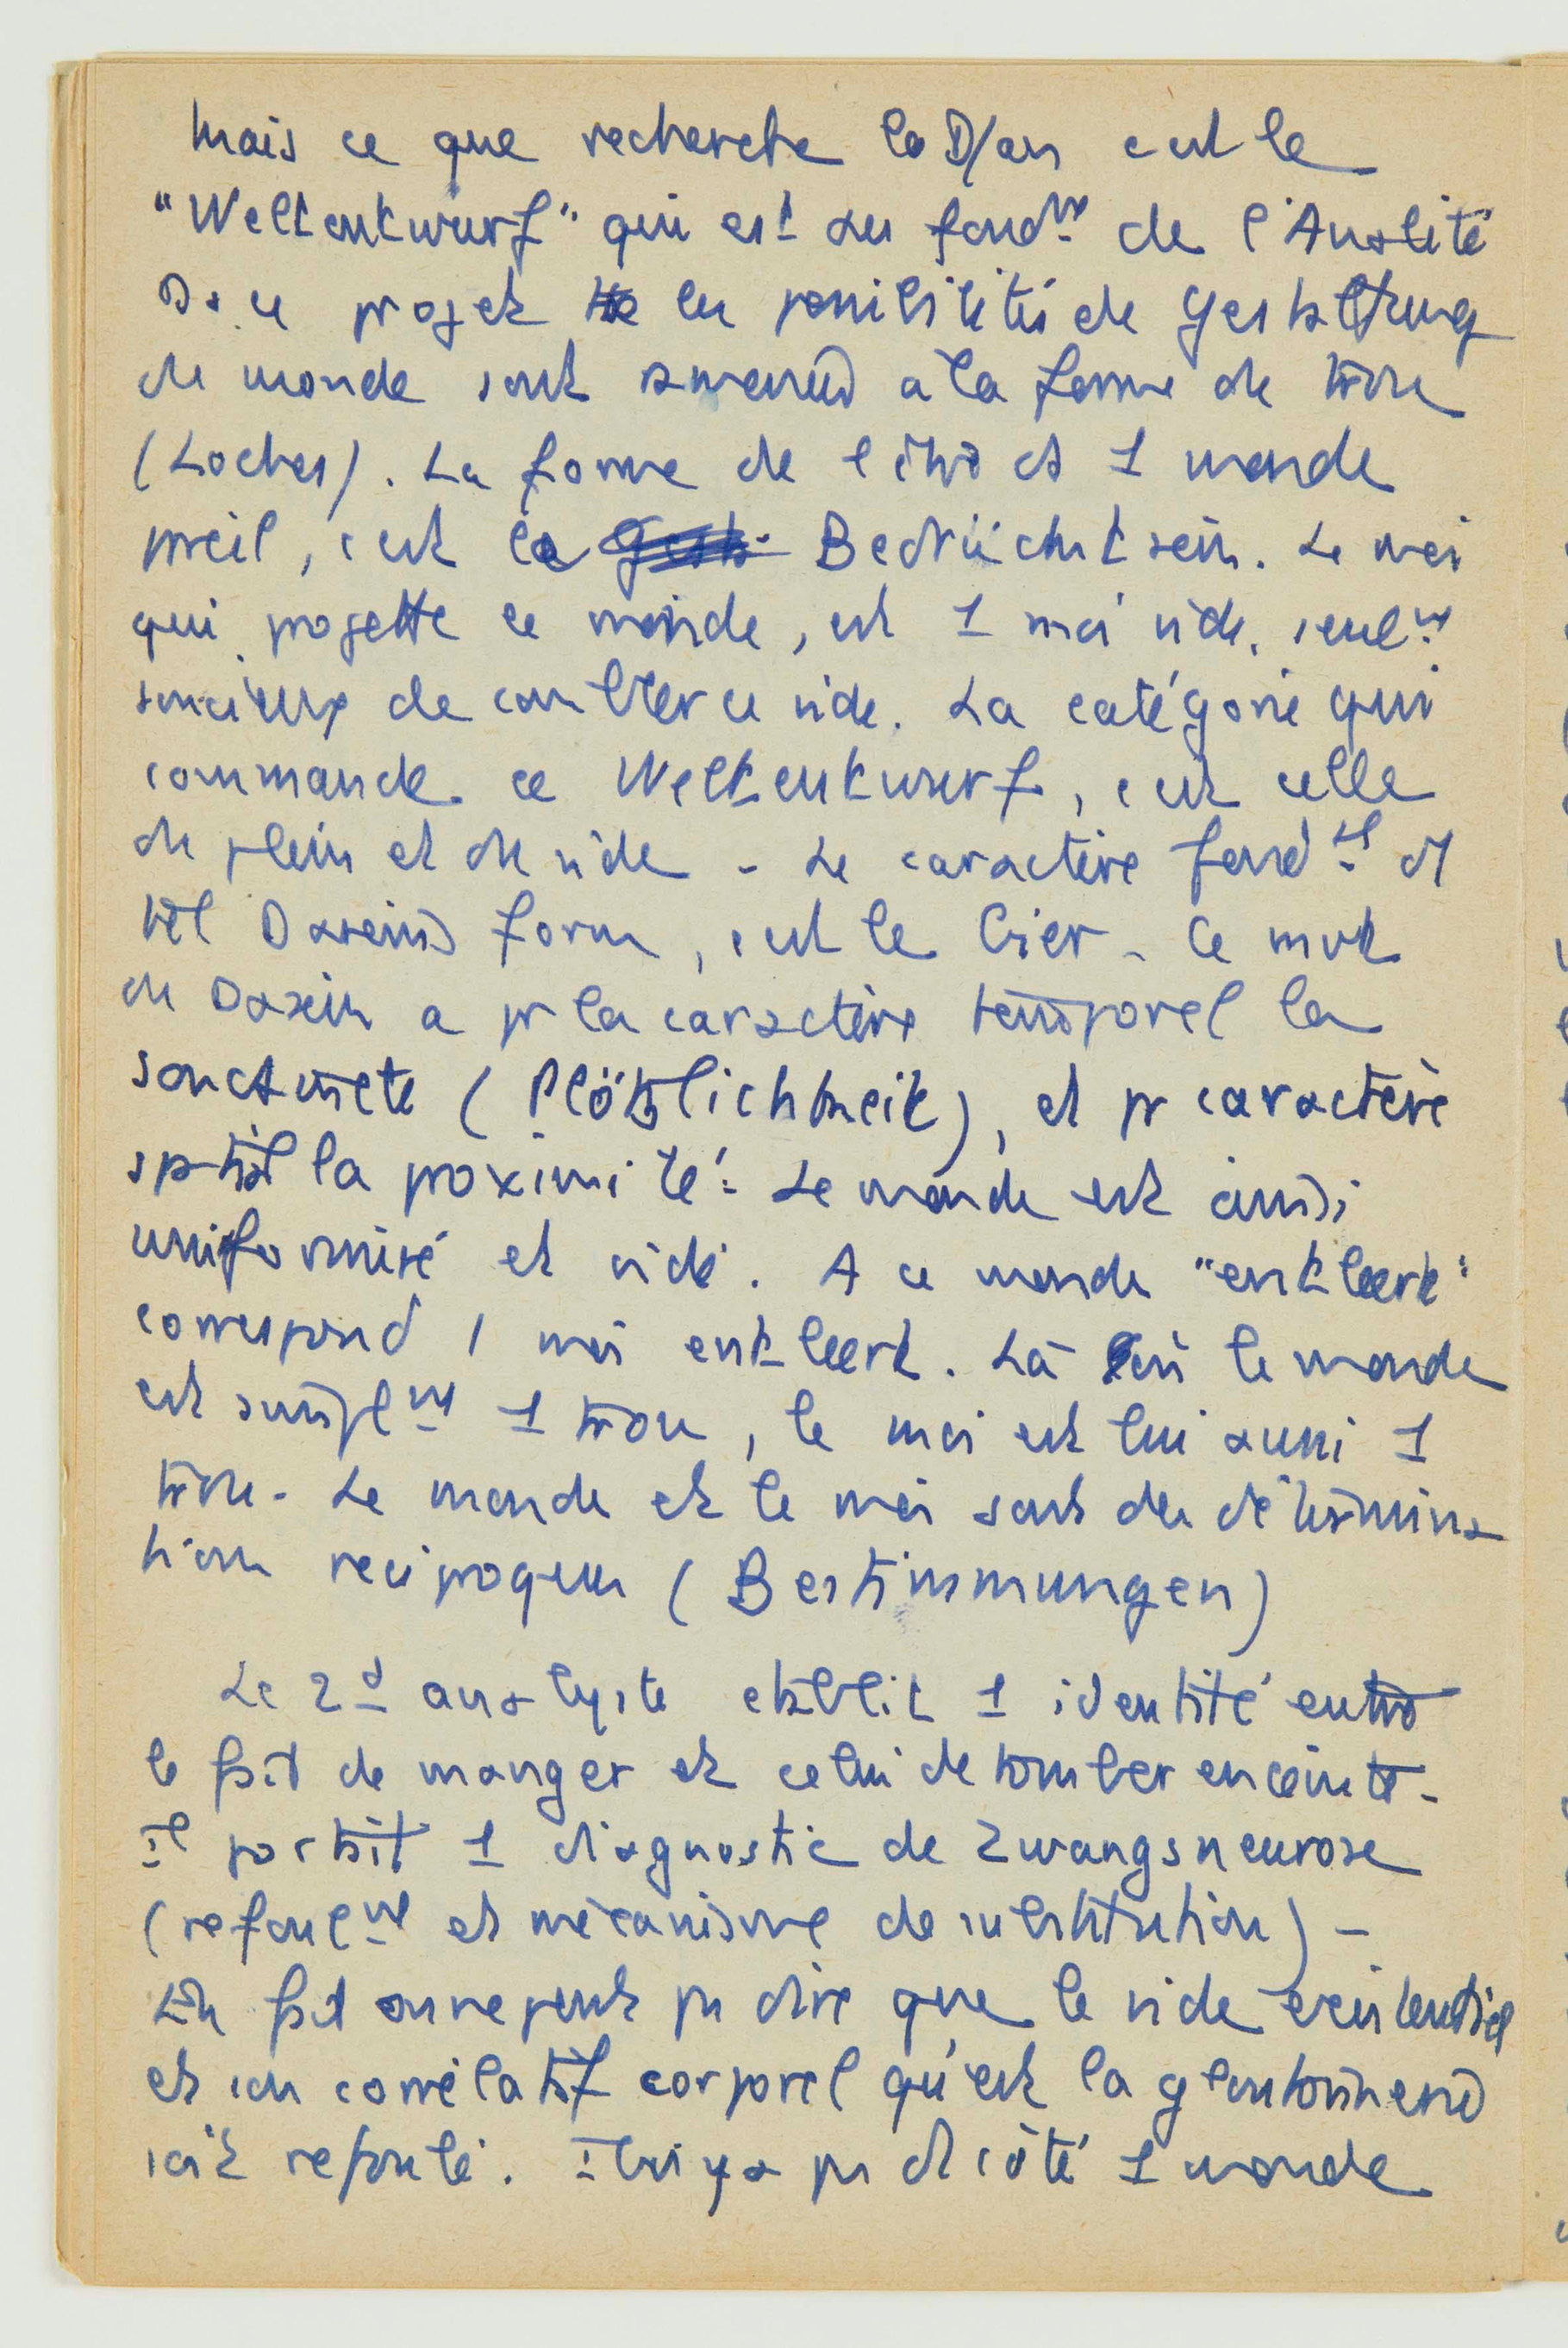 Mais ce que recherche la D/an c'est le
"Weltentwurf" qui est au fondnt de l'Analité
Ds ce projet les possibilités de Gestaltung
du monde sont ramenées à la forme de trou
(Loches). La forme de l'être ds 1 monde
pareil, c'est le Bedrücktsein. Le moi
qui projette ce monde, est 1 moi vide, seulnt
soucieux de combler ce vide. La catégorie qui
commande ce Weltentwurf, c'est celle
du plein et du vide - Le caractère fondtl d'1
tel Daseins form, c'est le Gier. Ce mode
du Dasein a pr la caractère temporel la
(Plötzlichkeit), et pr caractère
spatial la proximité. Le monde est ainsi
uniformisé et vidé. A ce monde "entleert"
correspond 1 moi entleert. Là où le monde
est simplnt 1 trou, le moi est lui aussi 1
trou. Le monde et le moi sont des détermina
tions réciproques (Bestimmungen)
Le 2d analyste établit 1 identité entre
le fait de manger et celui de tomber enceinte.
Il portait 1 diagnostic de Zwangsneurose
(refoulnt et mécanisme de substitution) -
En fait on ne peut pas dire que le vide existentiel
et son corrélatif corporel qu'est la gloutonnerie
soit refoulé. Il n'y a pas d'1 côté 1 monde